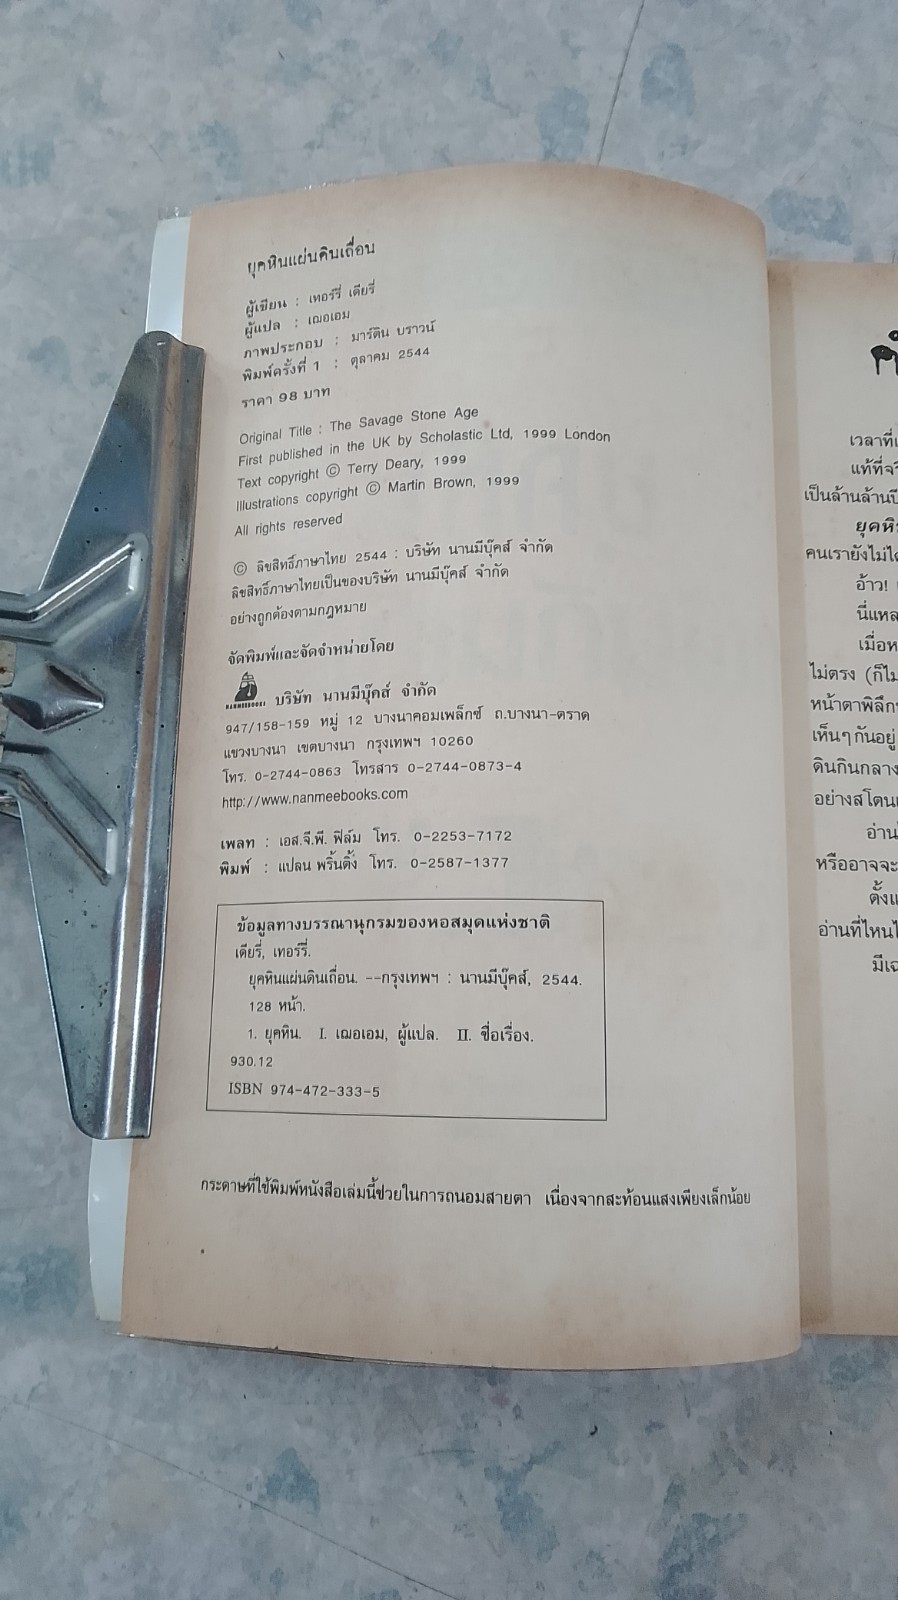 ยุคหินแผ่นดินเถื่อน
ผู้เขียน : เทอร์รี่ เดียรี่
ผู้แปล : เฌอเอม
ภาพประกอบ : มาร์ติน บราวน์
พิมพ์ครั้งที่ 1 : ตุลาคม 2544
ราคา 98 บาท
Original Title : The Savage Stone Age
First published in the UK by Scholastic Ltd, 1999 London
Text copyright © Terry Deary, 1999
Illustrations copyright © Martin Brown, 1999
All rights reserved
© ลิขสิทธิ์ภาษาไทย 2544 : บริษัท นานมีบุ๊คส์ จำกัด
ลิขสิทธิ์ภาษาไทยเป็นของบริษัท นานมีบุ๊คส์ จำกัด
อย่างถูกต้องตามกฎหมาย
จัดพิมพ์และจัดจำหน่ายโดย
NANMEEBOOKS บริษัท นานมีบุ๊คส์ จำกัด
947/158-159 หมู่ 12 บางนาคอมเพล็กซ์ ถ.บางนา-ตราด
แขวงบางนา เขตบางนา กรุงเทพฯ 10260
โทร. 0-2744-0863 โทรสาร 0-2744-0873-4
http://www.nanmeebooks.com
เพลท : เอส.จี.พี. ฟิล์ม โทร. 0-2253-7172
พิมพ์ : แปลน พริ้นติ้ง โทร. 0-2587-1377
ข้อมูลทางบรรณานุกรมของหอสมุดแห่งชาติ
เดียรี่, เทอร์รี่.
ยุคหินแผ่นดินเถื่อน. --กรุงเทพฯ : นานมีบุ๊คส์, 2544.
128 หน้า.
1. ยุคหิน. I. เฌอเอม, ผู้แปล. II. ชื่อเรื่อง.
930.12
ISBN 974-472-333-5
กระดาษที่ใช้พิมพ์หนังสือเล่มนี้ช่วยในการถนอมสายตา เนื่องจากสะท้อนแสงเพียงเล็กน้อย
เวลาที่
แท้ที่จริ
เป็นล้านล้านปี
ยุคหิน
คนเรายังไม่ได้
อ้าว!
นี่แหล
เมื่อห
ไม่ตรง (ก็ไม่
หน้าตาพิลึก
เห็นๆ กันอยู่
ดินกินกลาง
อย่างสโตน
อ่าน
หรืออาจจะ
ตั้งแ
อ่านที่ไหน
มีเฉ